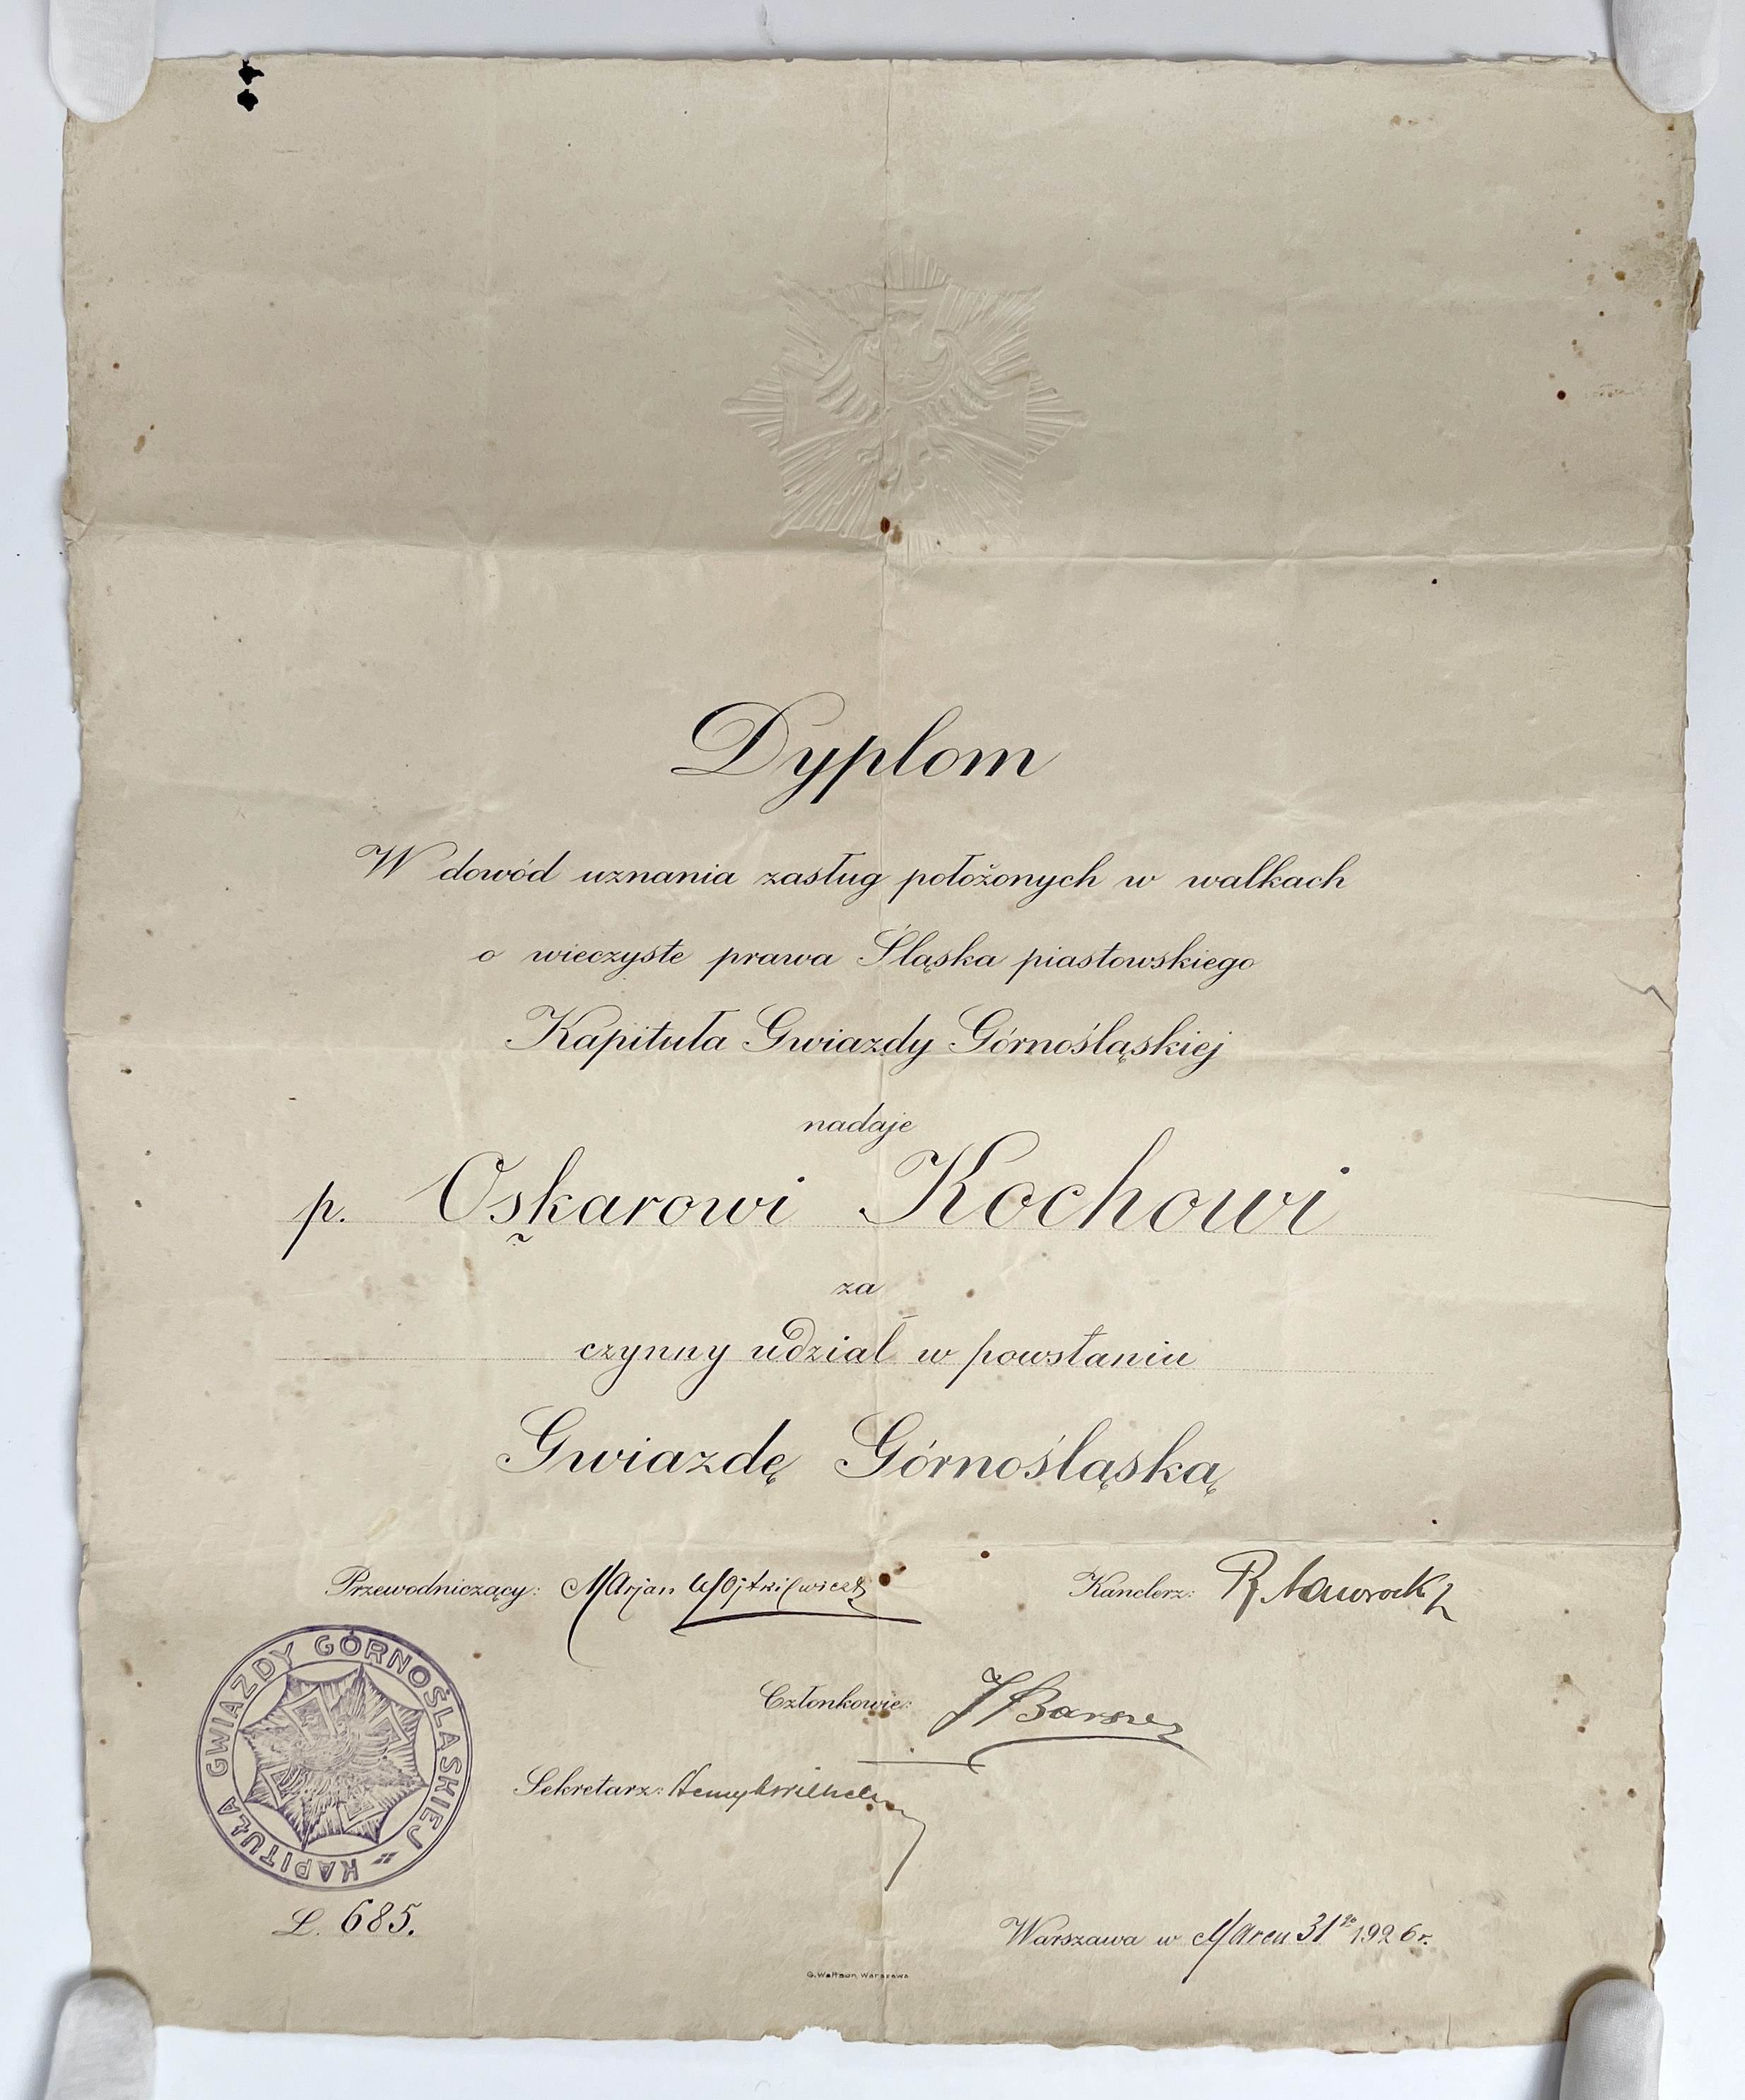 Dyplom
W dowód uznania zasług położonych w walkach
o wieczyste prawa Śląska piastowskiego
Kapituła Gwiazdy Górnośląskiej
nadaje
p. Oskarowi Kochowi
za
czynny udział w powstaniu
Gwiazdę Górnośląską
Przewodniczący: Marjan Wojtkiewicz
Kanclerz: R. Nawrocki
Członkowie:
Sekretarz: Henryk Wilhelm
KAPITUŁA GWIAZDY GÓRNOŚLĄSKIEJ
L. 685.
Warszawa w Marcu 31go 1926 r.
Warszawa